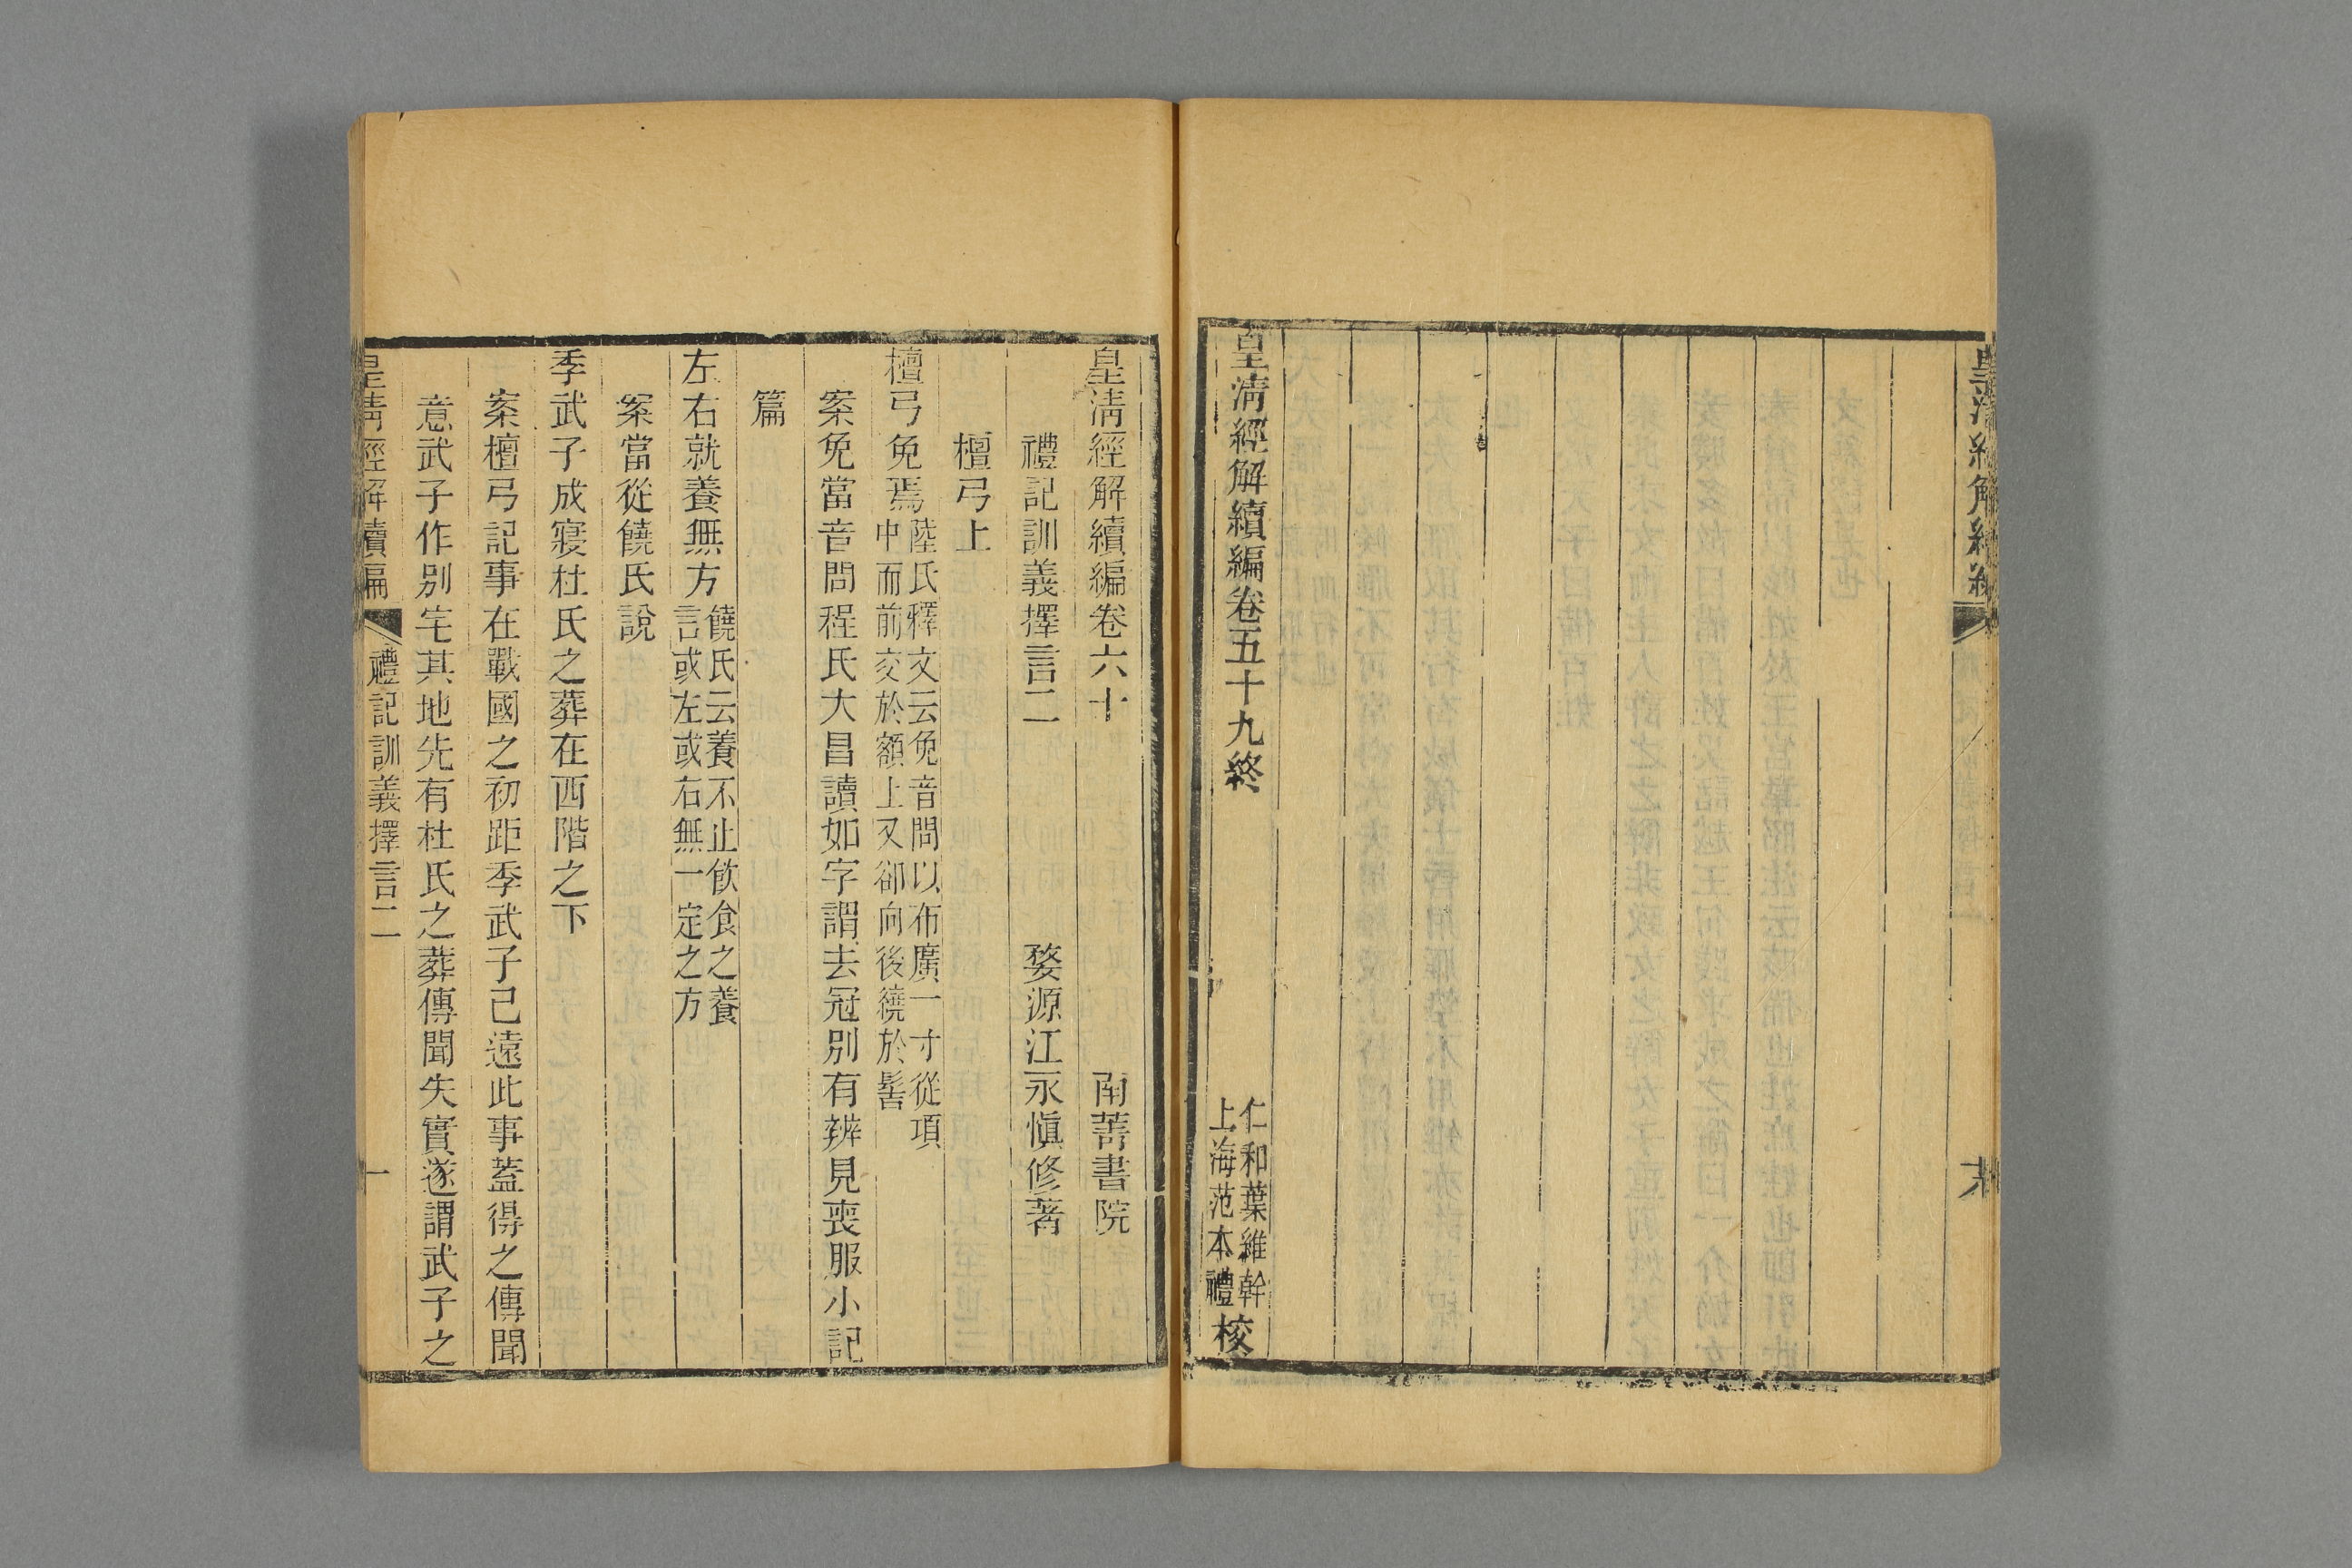 皇清經解續編卷五十九終
仁和葉維幹
上海范本禮
校
皇清經解續編卷六十
南菁書院
禮記訓義擇言二
婺源江永慎修著
檀弓上
檀弓免焉
陸氏釋文云免音問以布廣一寸從項
中而前交於額上又卻向後繞於髻
案免當音問程氏大昌讀如字謂去冠別有辨見喪服小記
篇
左右就養無方
饒氏云養不止飲食之養
言或左或右無一定之方
案當從饒氏說
季武子成寢杜氏之葬在西階之下
案檀弓記事在戰國之初距季武子已遠此事蓋得之傳聞
意武子作別宅其地先有杜氏之葬傳聞失實遂謂武子之
皇清經解續編
禮記訓義擇言二
一